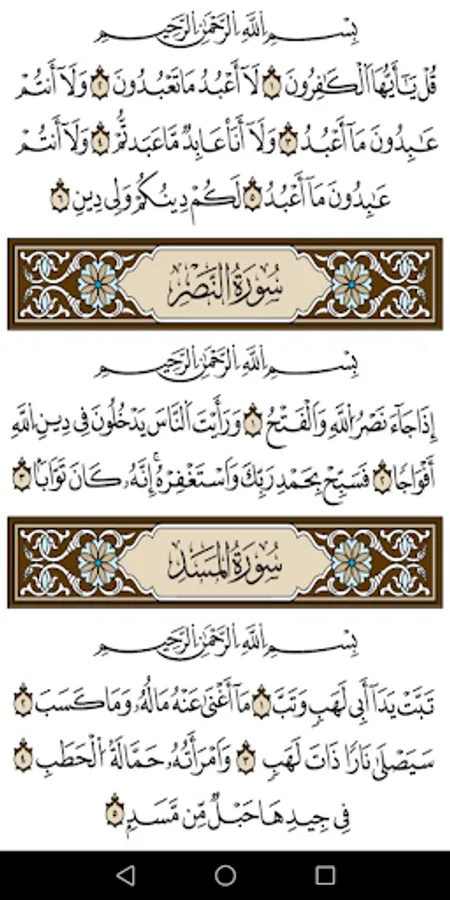 بِسْمِ اللَّهِ الرَّحْمَٰنِ الرَّحِيمِ
قُلْ يَٰٓأَيُّهَا ٱلْكَٰفِرُونَ ١ لَآ أَعْبُدُ مَا تَعْبُدُونَ ٢ وَلَآ أَنتُمْ
عَٰبِدُونَ مَآ أَعْبُدُ ٣ وَلَآ أَنَا۠ عَابِدٌ مَّا عَبَدتُّمْ ٤ وَلَآ أَنتُمْ
عَٰبِدُونَ مَآ أَعْبُدُ ٥ لَكُمْ دِينُكُمْ وَلِىَ دِينِ ٦
سُورَةُ النَّصْرِ
بِسْمِ اللَّهِ الرَّحْمَٰنِ الرَّحِيمِ
إِذَا جَآءَ نَصْرُ ٱللَّهِ وَٱلْفَتْحُ ١ وَرَأَيْتَ ٱلنَّاسَ يَدْخُلُونَ فِى دِينِ ٱللَّهِ
أَفْوَاجًا ٢ فَسَبِّحْ بِحَمْدِ رَبِّكَ وَٱسْتَغْفِرْهُ ۚ إِنَّهُۥ كَانَ تَوَّابًۢا ٣
سُورَةُ المَسَدِ
بِسْمِ اللَّهِ الرَّحْمَٰنِ الرَّحِيمِ
تَبَّتْ يَدَآ أَبِى لَهَبٍ وَتَبَّ ١ مَآ أَغْنَىٰ عَنْهُ مَالُهُۥ وَمَا كَسَبَ ٢
سَيَصْلَىٰ نَارًا ذَاتَ لَهَبٍ ٣ وَٱمْرَأَتُهُۥ حَمَّالَةَ ٱلْحَطَبِ ٤
فِى جِيدِهَا حَبْلٌ مِّن مَّسَدٍۭ ٥